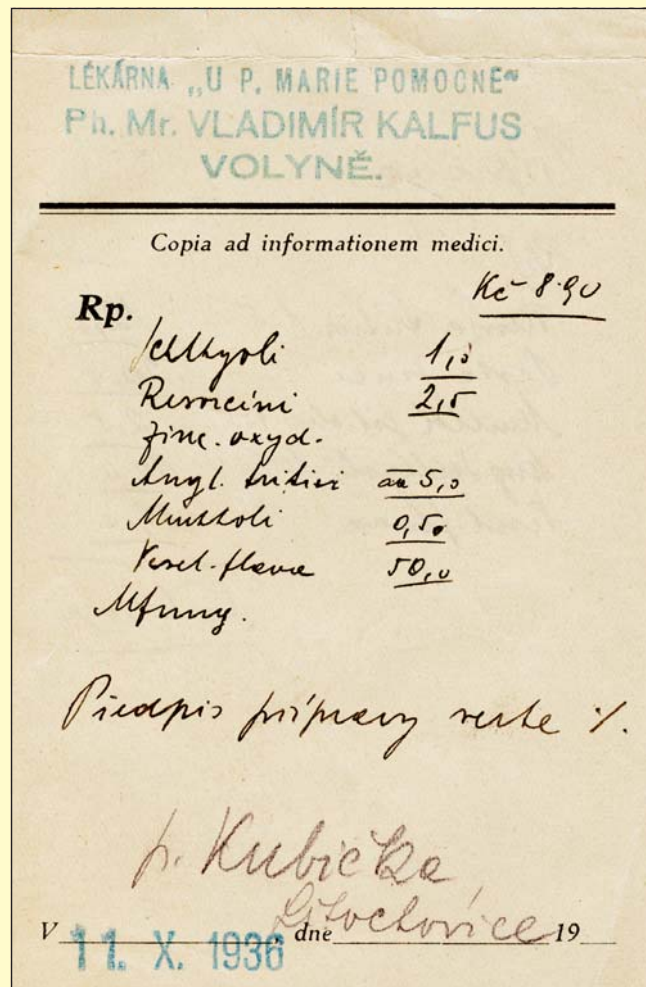 LÉKÁRNA „U P. MARIE POMOCNÉ“
Ph. Mr. VLADIMÍR KALFUS
VOLYNĚ.
Copia ad informationem medici.
Kč 8·90
Rp.
Ichthyoli 1,0
Resorcini 2,5
Zinc. oxyd.
Amyl. tritici aa 5,0
Mentholi 0,50
Vasel. flava 50,0
Mfung.
Předpis přípravy verte ./.
p. Kubička,
V 11. X. 1936 dne 19